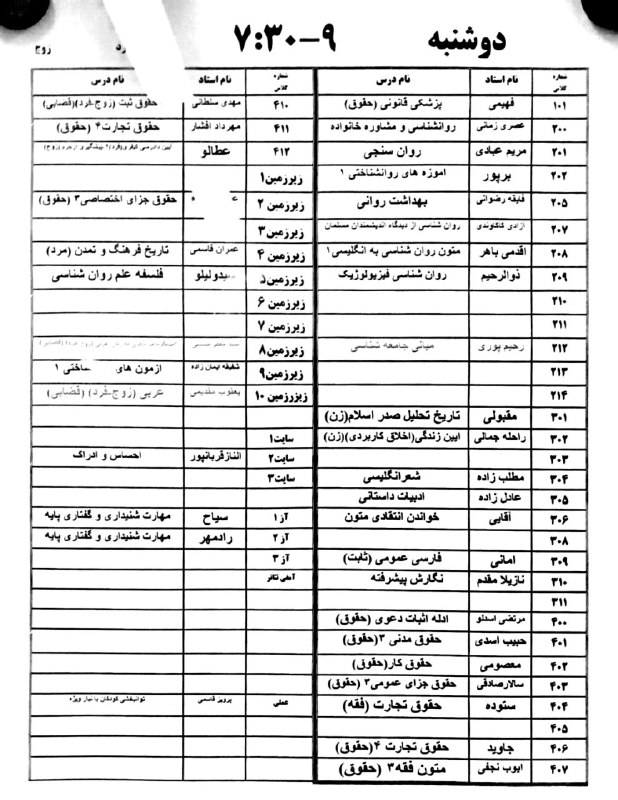 دوشنبه ۹-۷:۳۰
رد زوج
شماره کلاس نام استاد نام درس
۱۰۱ فهیمی پزشکی قانونی (حقوق)
۲۰۰ عصری زمانی روانشناسی و مشاوره خانواده
۲۰۱ مریم عبادی روان سنجی
۲۰۲ برپور اموزه های روانشناختی ۱
۲۰۵ فایقه رضوانی بهداشت روانی
۲۰۷ ازادی کاکاوندی روان شناسی از دیدگاه اندیشمندان مسلمان
۲۰۸ اقدمی باهر متون روان شناسی به انگلیسی۱
۲۰۹ ذوالرحیم روان شناسی فیزیولوژیک
۲۱۰
۲۱۱
۲۱۲ رحیم پوری مبانی جامعه شناسی
۲۱۳
۲۱۴
۳۰۱ مقبولی تاریخ تحلیل صدر اسلام(زن)
۳۰۲ راحله جمالی ایین زندگی(اخلاق کاربردی)(زن)
۳۰۳
۳۰۴ مطلب زاده شعرانگلیسی
۳۰۵ عادل زاده ادبیات داستانی
۳۰۶ آقایی خواندن انتقادی متون
۳۰۸
۳۰۹ امانی فارسی عمومی (ثابت)
۳۱۰ نازیلا مقدم نگارش پیشرفته
۳۱۱
۴۰۰ مرتضی اسدلو ادله اثبات دعوی (حقوق)
۴۰۱ حبیب اسدی حقوق مدنی ۳(حقوق)
۴۰۲ معصومی حقوق کار(حقوق)
۴۰۳ سالارصادقی حقوق جزای عمومی۳ (حقوق)
۴۰۴ ستوده حقوق تجارت (فقه)
۴۰۵
۴۰۶ جاوید حقوق تجارت ۴(حقوق)
۴۰۷ ایوب نجفی متون فقه۳ (حقوق)
شماره کلاس نام استاد نام درس
۴۱۰ مهدی سلطانی حقوق ثبت (زوج-فرد)(قضایی)
۴۱۱ مهرداد افشار حقوق تجارت۴ (حقوق)
۴۱۲ عطالو
زیرزمین۱
زیرزمین ۲ حقوق جزای اختصاصی۳ (حقوق)
زیرزمین۳
زیرزمین ۴ عمران قاسمی تاریخ فرهنگ و تمدن (مرد)
زیرزمین۵ سیدولیلو فلسفه علم روان شناسی
زیرزمین ۶
زیرزمین ۷
زیرزمین۸
زیرزمین۹ شفیقه ایمان زاده ازمون های ختی ۱
زیرزمین ۱۰ یعقوب مقدیمی عربی (زوج-فرد) (قضایی)
سایت۱
سایت۲ النازقربانپور احساس و ادراک
سایت۳
آز۱ سیاح مهارت شنیداری و گفتاری پایه
آز۲ رادمهر مهارت شنیداری و گفتاری پایه
آز۳
آمفی تئاتر
عملی پرویز قاسمی توانبخشی کودکان با نیاز ویژه